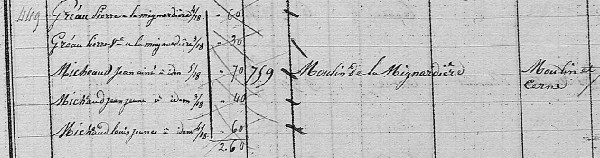 449 Gréau Pierre a la mignardière 4/18 - 60
Gréau Pierre Vve a la mignardière 2/18 - 30
Michaud jean ainé a idm 5/18 - 70 759 Moulin de la Mignardière Moulin et
Michaud jean jeune à idem 3/18 - 40 Cerne
Michaud louis jeune à idem 4/18 - 60
2.60